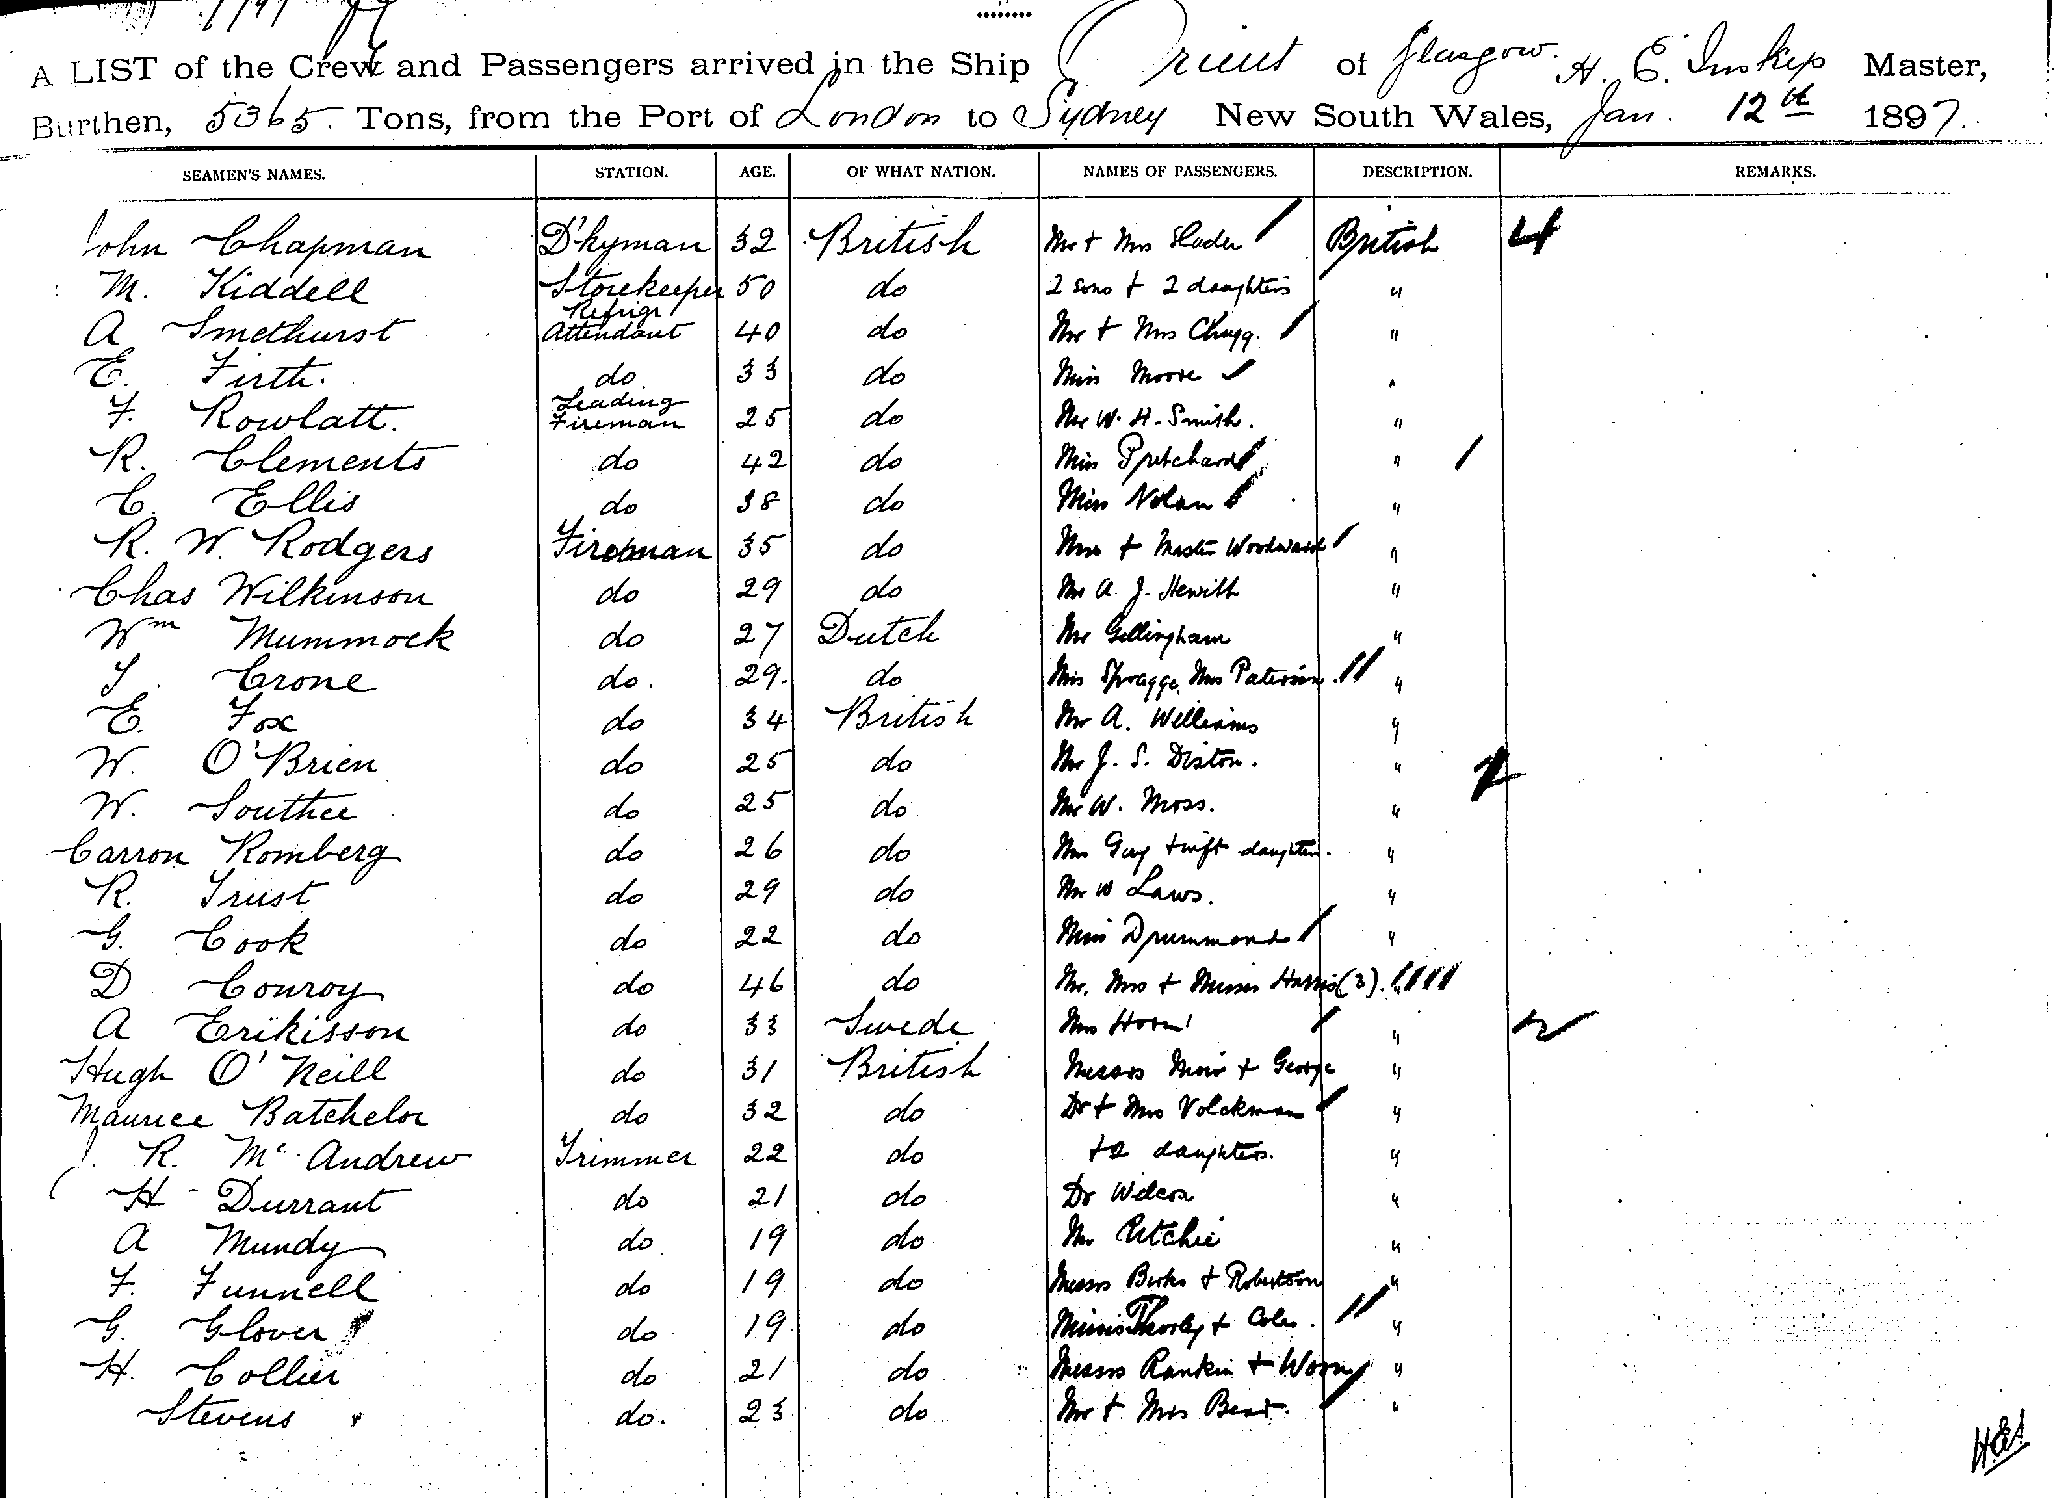 A LIST of the Crew and Passengers arrived in the Ship Orient of Glasgow. H. E. Inskip Master,
Burthen, 5365. Tons, from the Port of London to Sydney New South Wales, Jan. 12th 1897.
SEAMEN'S NAMES. STATION. AGE. OF WHAT NATION. NAMES OF PASSENGERS. DESCRIPTION. REMARKS.
John Chapman D'kyman 32 British Mr + Mrs Slader British 4
M. Kiddell Storekeeper 50 do 2 sons + 2 daughters "
A Smethurst Refrigr Attendant 40 do Mr + Mrs Chugg. "
E. Firth. do 33 do Miss Moore "
F. Rowlatt. Leading Fireman 25 do Mr W. H. Smith. "
R. Clements do 42 do Miss Pritchard "
C. Ellis do 38 do Miss Nolan "
R. W. Rodgers Fireman 35 do Mrs + Master Woodward "
Chas Wilkinson do 29 do Mr A. J. Hewitt "
Wm Mummock do 27 Dutch Mr Gillingham "
Crone do. 29. do Miss Spragge, Mrs Paterson. "
E. Fox do 34 British Mr A. Williams "
W. O'Brien do 25 do Mr J. S. Diston. "
W. Southee do 25 do Mr W. Moss. "
Carron Romberg do 26 do Mrs Guy + inft daughter. "
R. Trust do 29 do Mr W Laws. "
G. Cook do 22 do Miss Drummond "
D Conroy do 46 do Mr. Mrs + Misses Harris (2). "
A Erikisson do 33 Swede Mrs Horn "
Hugh O'Neill do 31 British Messrs Moir + George "
Maurice Batchelor do 32 do Dr + Mrs Volckman "
J. R. McAndrew Trimmer 22 do + 2 daughters. "
H Durrant do 21 do Dr Wilcox "
A Mundy do 19 do Mr Ritchie "
F. Funnell do 19 do Messrs Birks + Robertson "
G. Glover do 19 do Misses Thorley + Coles. "
H. Collier do 21 do Messrs Rankin + "
Stevens do. 23 do Mr + Mrs Best. "
HEI